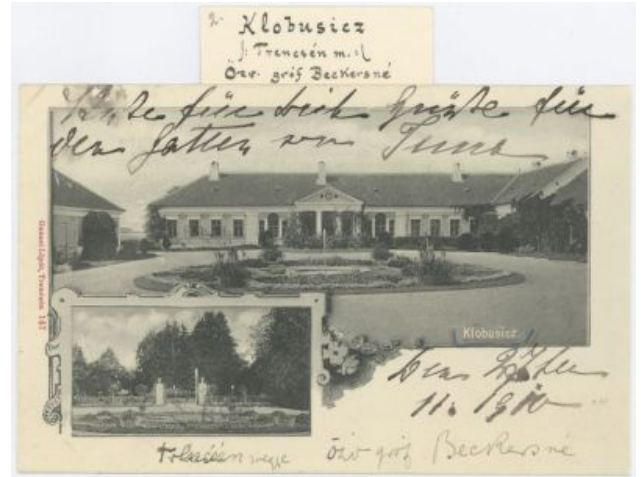 2. Klobusicz
/: Trencsén m. :/
Özv. gróf Beckersné
für dich Grüße für
den Gatten von
Gansel Lipót, Trencsén 147
Klobusicz
Den 27ten
11. 910
Trencsén megye Özv gróf Beckersné